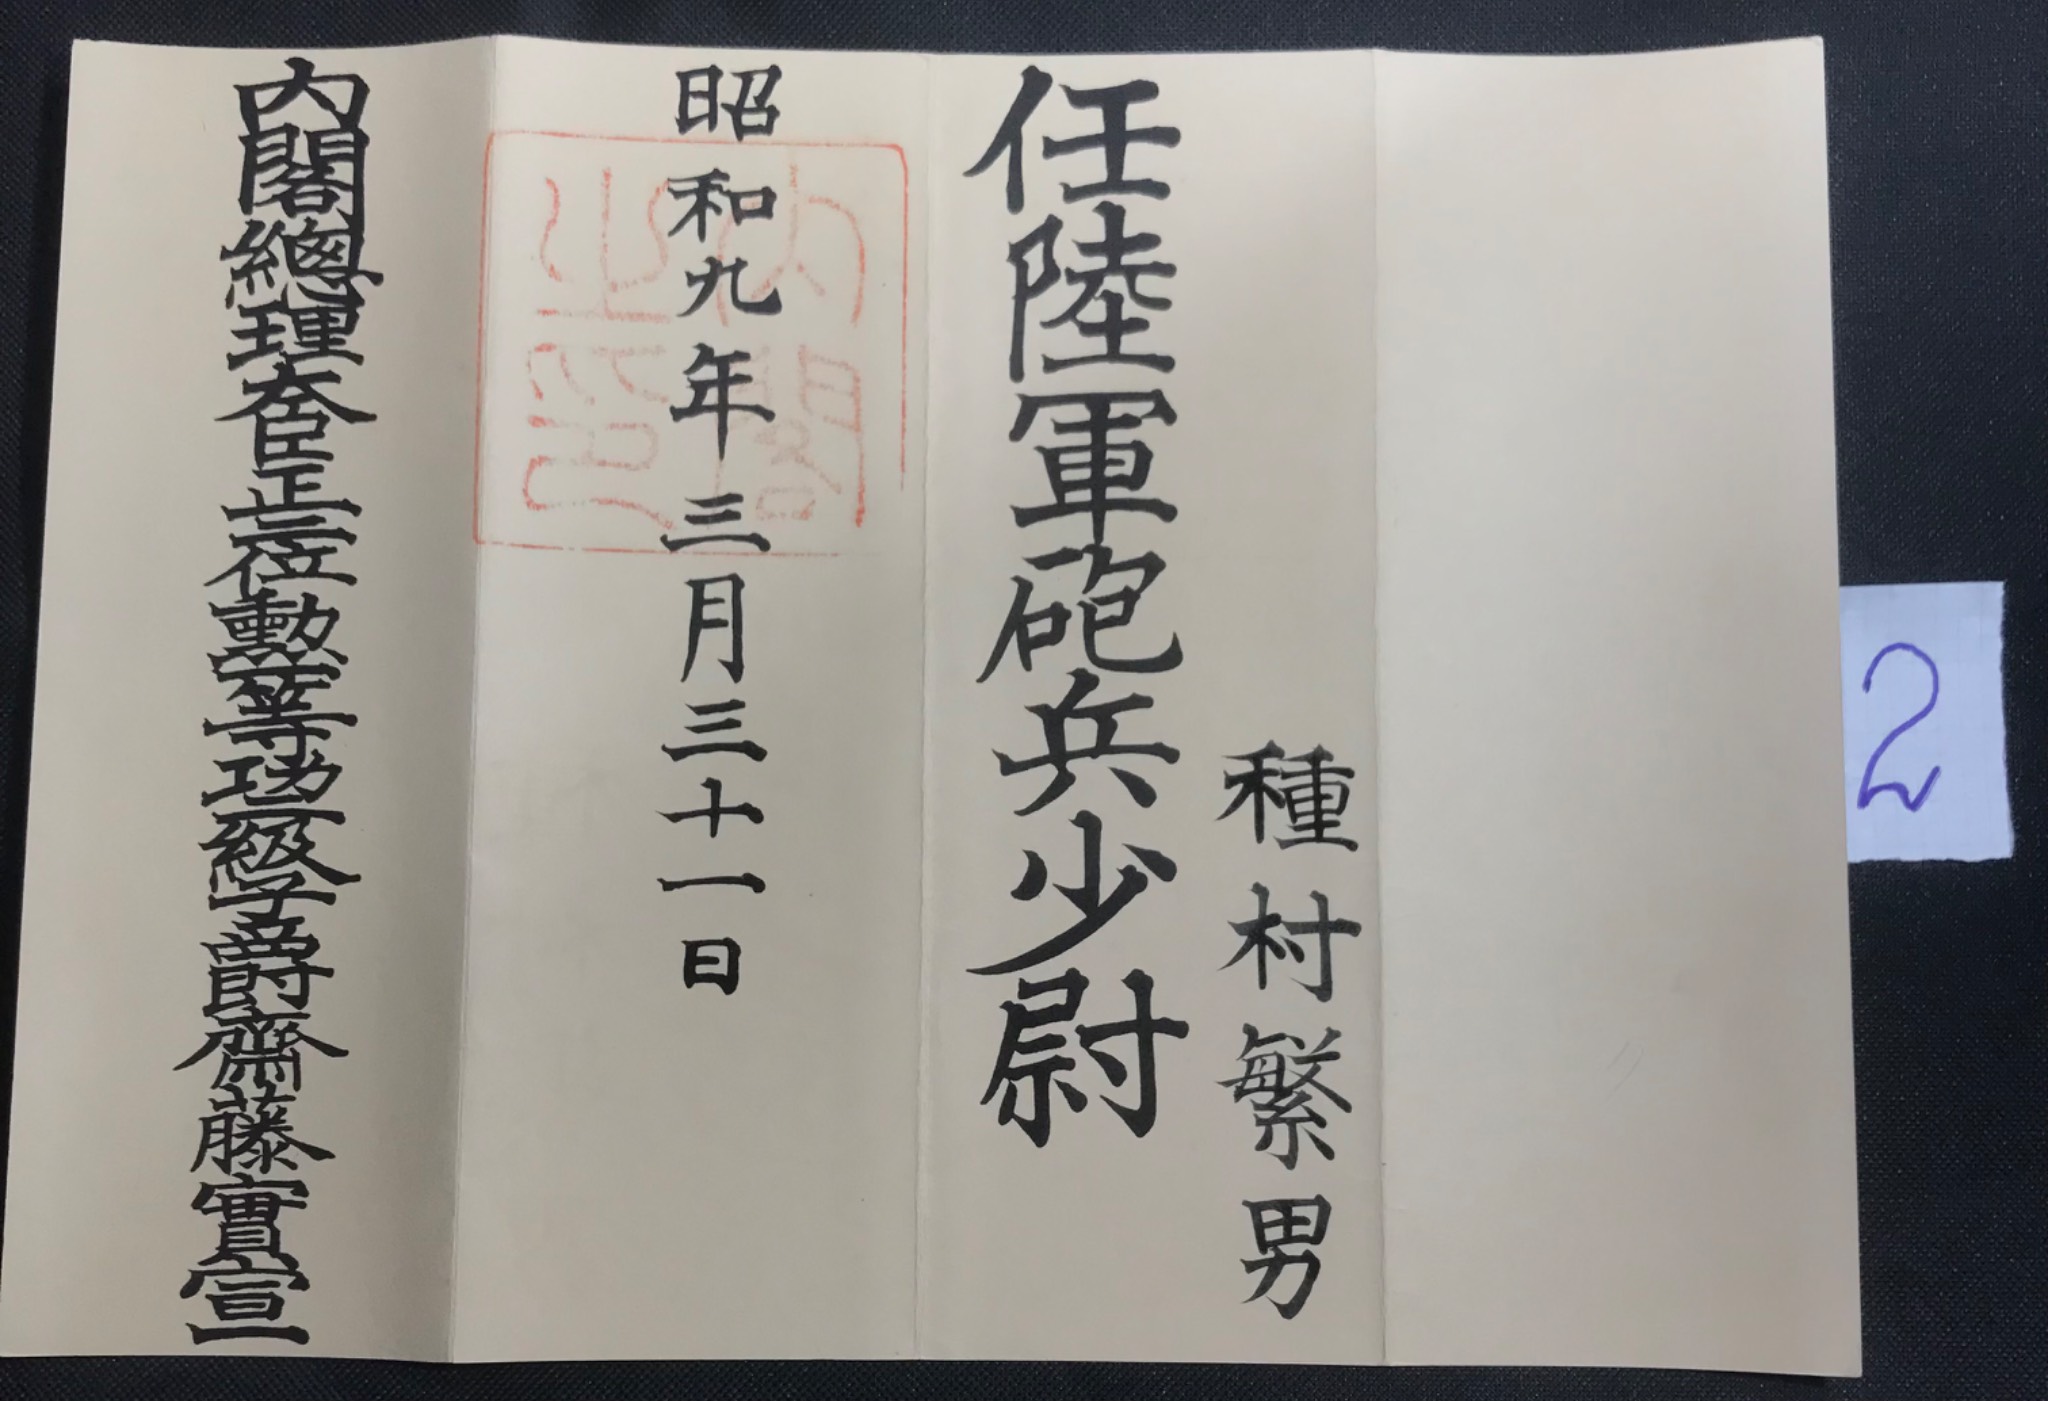 種村繁男
任陸軍砲兵少尉
昭和九年三月三十一日
內閣之印
內閣總理大臣正二位勳一等功二級子爵齋藤實宣
2